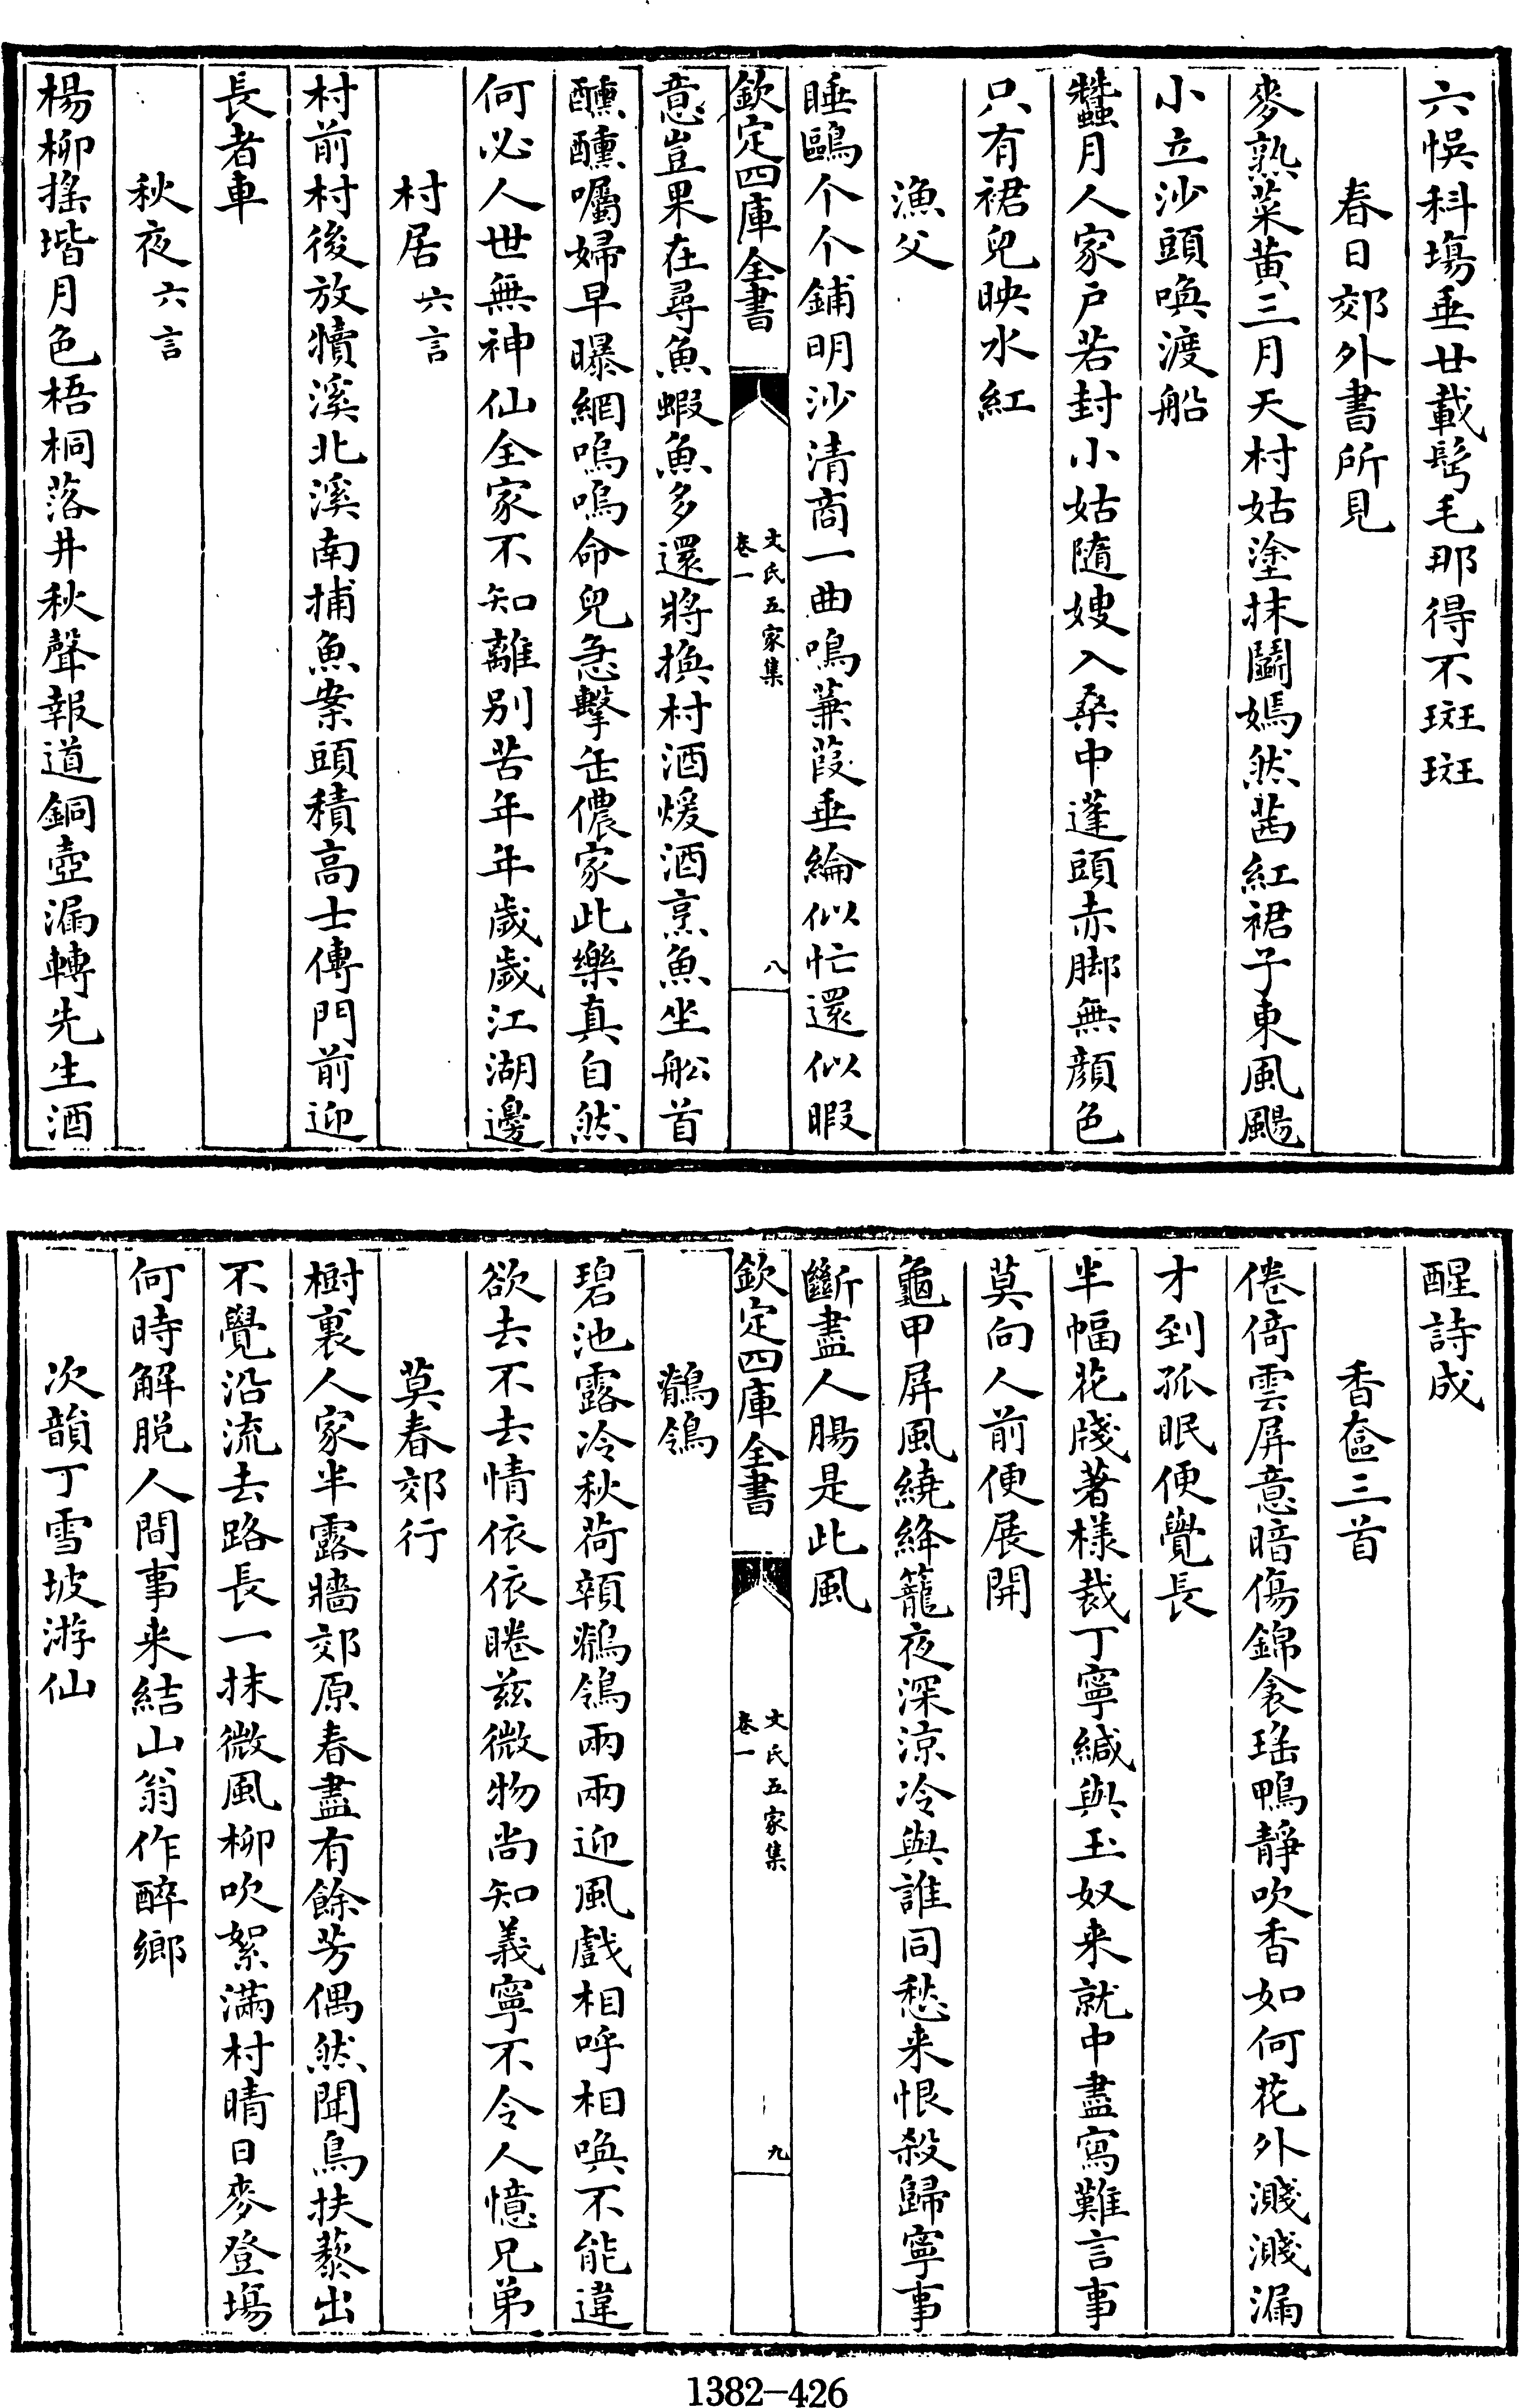 六悞科塲垂廿載髩毛那得不斑斑
春日郊外書所見
麥熟菜黄三月天村姑塗抹鬭嫣然茜紅裙子東風颺
小立沙頭喚渡船
蠶月人家戸若封小姑隨嫂入桑中蓬頭赤脚無顔色
只有裙兒映水紅
漁父
睡鷗个个鋪明沙清商一曲鳴蒹葭垂綸似忙還似暇
欽定四庫全書
文氏五家集
卷一
八
意豈果在尋魚蝦魚多還將換村酒煖酒烹魚坐舩首
醺醺囑婦早曝網嗚嗚命兒急擊缶儂家此樂真自然
何必人世無神仙全家不知離别苦年年歲歲江湖邊
村居六言
村前村後放犢溪北溪南捕魚案頭積高士傳門前迎
長者車
秋夜六言
楊柳摇堦月色梧桐落井秋聲報道銅壺漏轉先生酒
醒詩成
香奩三首
倦倚雲屏意暗傷錦衾瑤鴨靜吹香如何花外濺濺漏
才到孤眠便覺長
半幅花牋著様裁丁寧緘與玉奴来就中盡寫難言事
莫向人前便展開
龜甲屏風繞絳籠夜深涼冷與誰同愁来恨殺歸寧事
斷盡人腸是此風
欽定四庫全書
文氏五家集
卷一
九
鶺鴒
碧池露冷秋荷頰鶺鴒兩兩迎風戲相呼相喚不能違
欲去不去情依依睠兹微物尚知義寧不令人憶兄弟
莫春郊行
樹裏人家半露牆郊原春盡有餘芳偶然聞鳥扶藜出
不覺沿流去路長一抹微風柳吹絮滿村晴日麥登塲
何時解脱人間事来結山翁作醉鄉
次韻丁雪坡游仙
1382-426